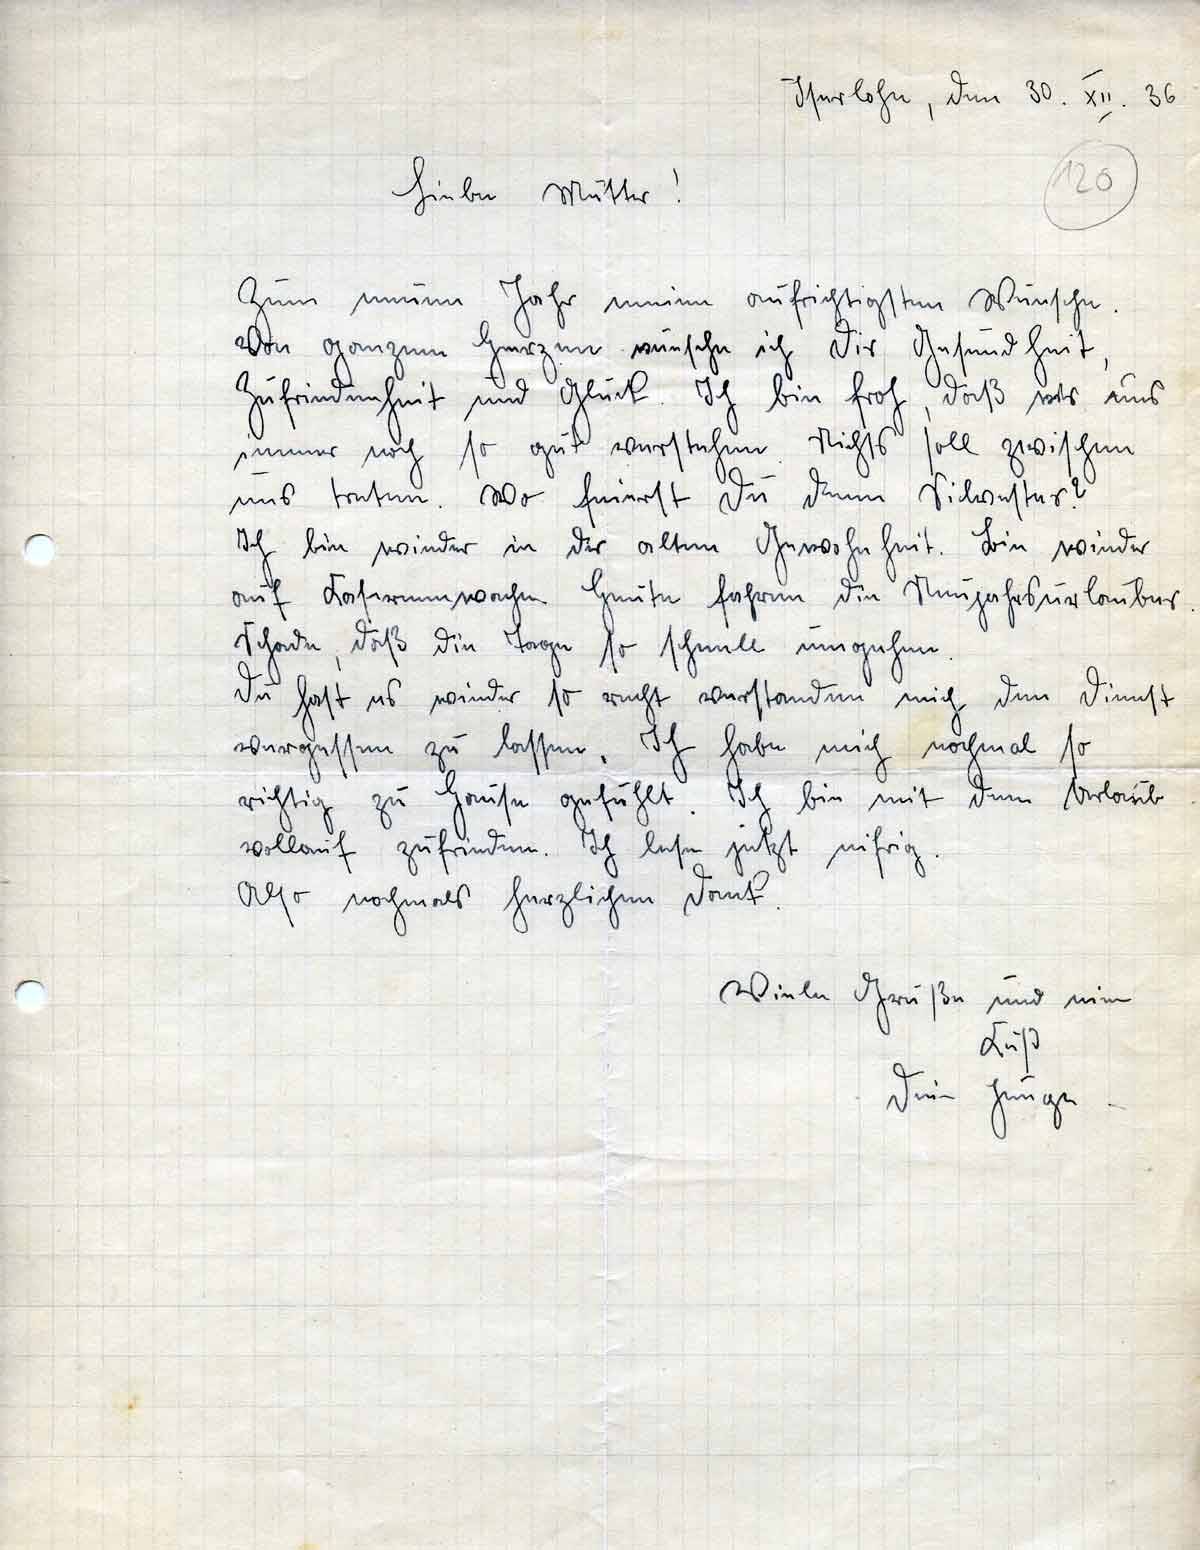 Iserlohn, den 30. XII. 36
120
Liebe Mutter!
Zum neuen Jahr meine aufrichtigsten Wünsche.
Von ganzem Herzen wünsche ich Dir Gesundheit,
Zufriedenheit und Glück. Ich bin froh, daß wir uns
immer noch so gut verstehen. Nichts soll zwischen
uns treten. Wo feierst Du denn Silvester?
Ich bin wieder in der alten Gewohnheit. Bin wieder
auf Kasernenwache. Heute fahren die Neujahrsurlauber.
Schade, daß die Tage so schnell umgehen.
Du hast es wieder so recht verstanden mich den Dienst
vergessen zu lassen. Ich habe mich nochmal so
richtig zu Hause gefühlt. Ich bin mit dem Urlaub
vollauf zufrieden. Ich lese jetzt eifrig.
Also nochmals herzlichen Dank.
Viele Grüße und einen
Kuß
Dein Junge